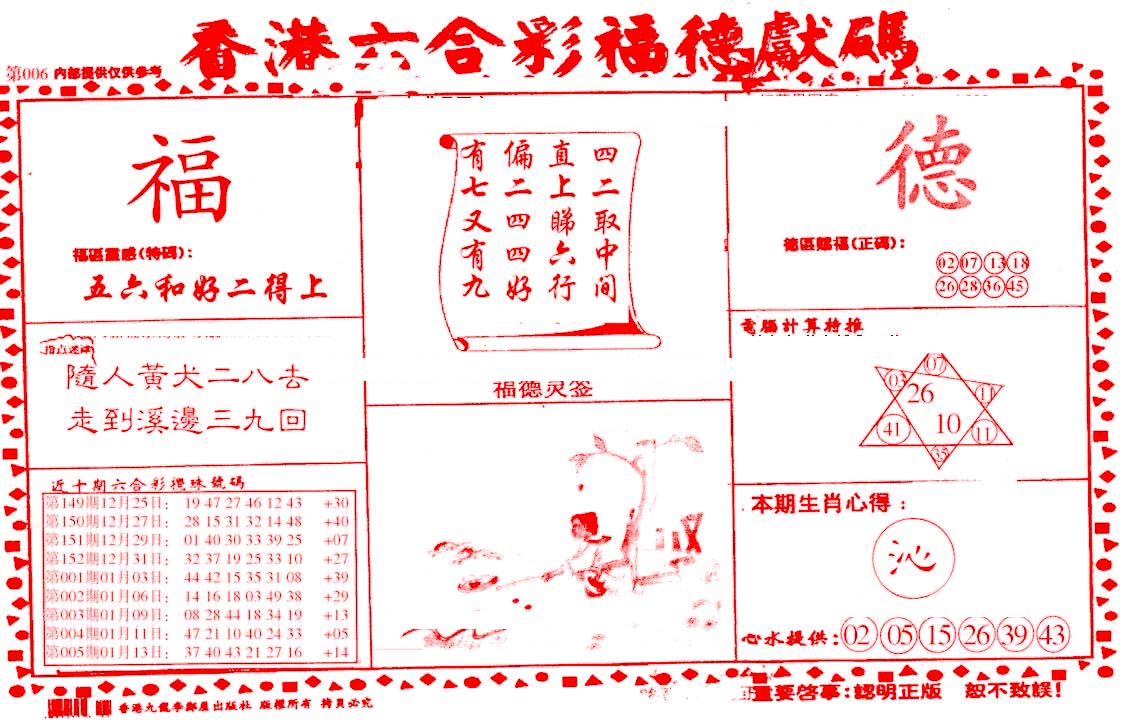 香港六合彩福德獻碼
第006 内部提供仅供参考
福
福區靈感(特碼):
五六和好二得上
指点迷津
隨人黃犬二八去
走到溪邊三九回
近十期六合彩攪珠號碼
第149期12月25日: 19 47 27 46 12 43 +30
第150期12月27日: 28 15 31 32 14 48 +40
第151期12月29日: 01 40 30 33 39 25 +07
第152期12月31日: 32 37 19 25 33 10 +27
第001期01月03日: 44 42 15 35 31 08 +39
第002期01月06日: 14 16 18 03 49 38 +29
第003期01月09日: 08 28 44 18 34 19 +13
第004期01月11日: 47 21 10 40 24 33 +05
第005期01月13日: 37 40 43 21 27 16 +14
四二取中间
直上睇六行
偏二四四好
有七又有九
福德灵签
德
德區赐福(正碼):
02 07 13 18
26 28 36 45
電腦計算特推
07
03 26 11
41 10 11
35
本期生肖心得:
沁
心水提供: 02 05 15 26 39 43
香港九龍李鄭屋出版社 版權所有 拷貝必究
重要啓事:認明正版 恕不致誤!